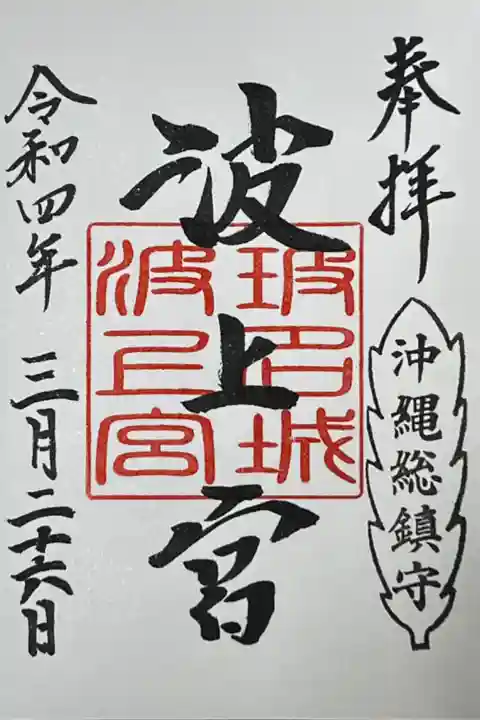 奉拝
沖縄総鎮守
波上宮
玻名城
波上宮
令和四年 三月二十六日